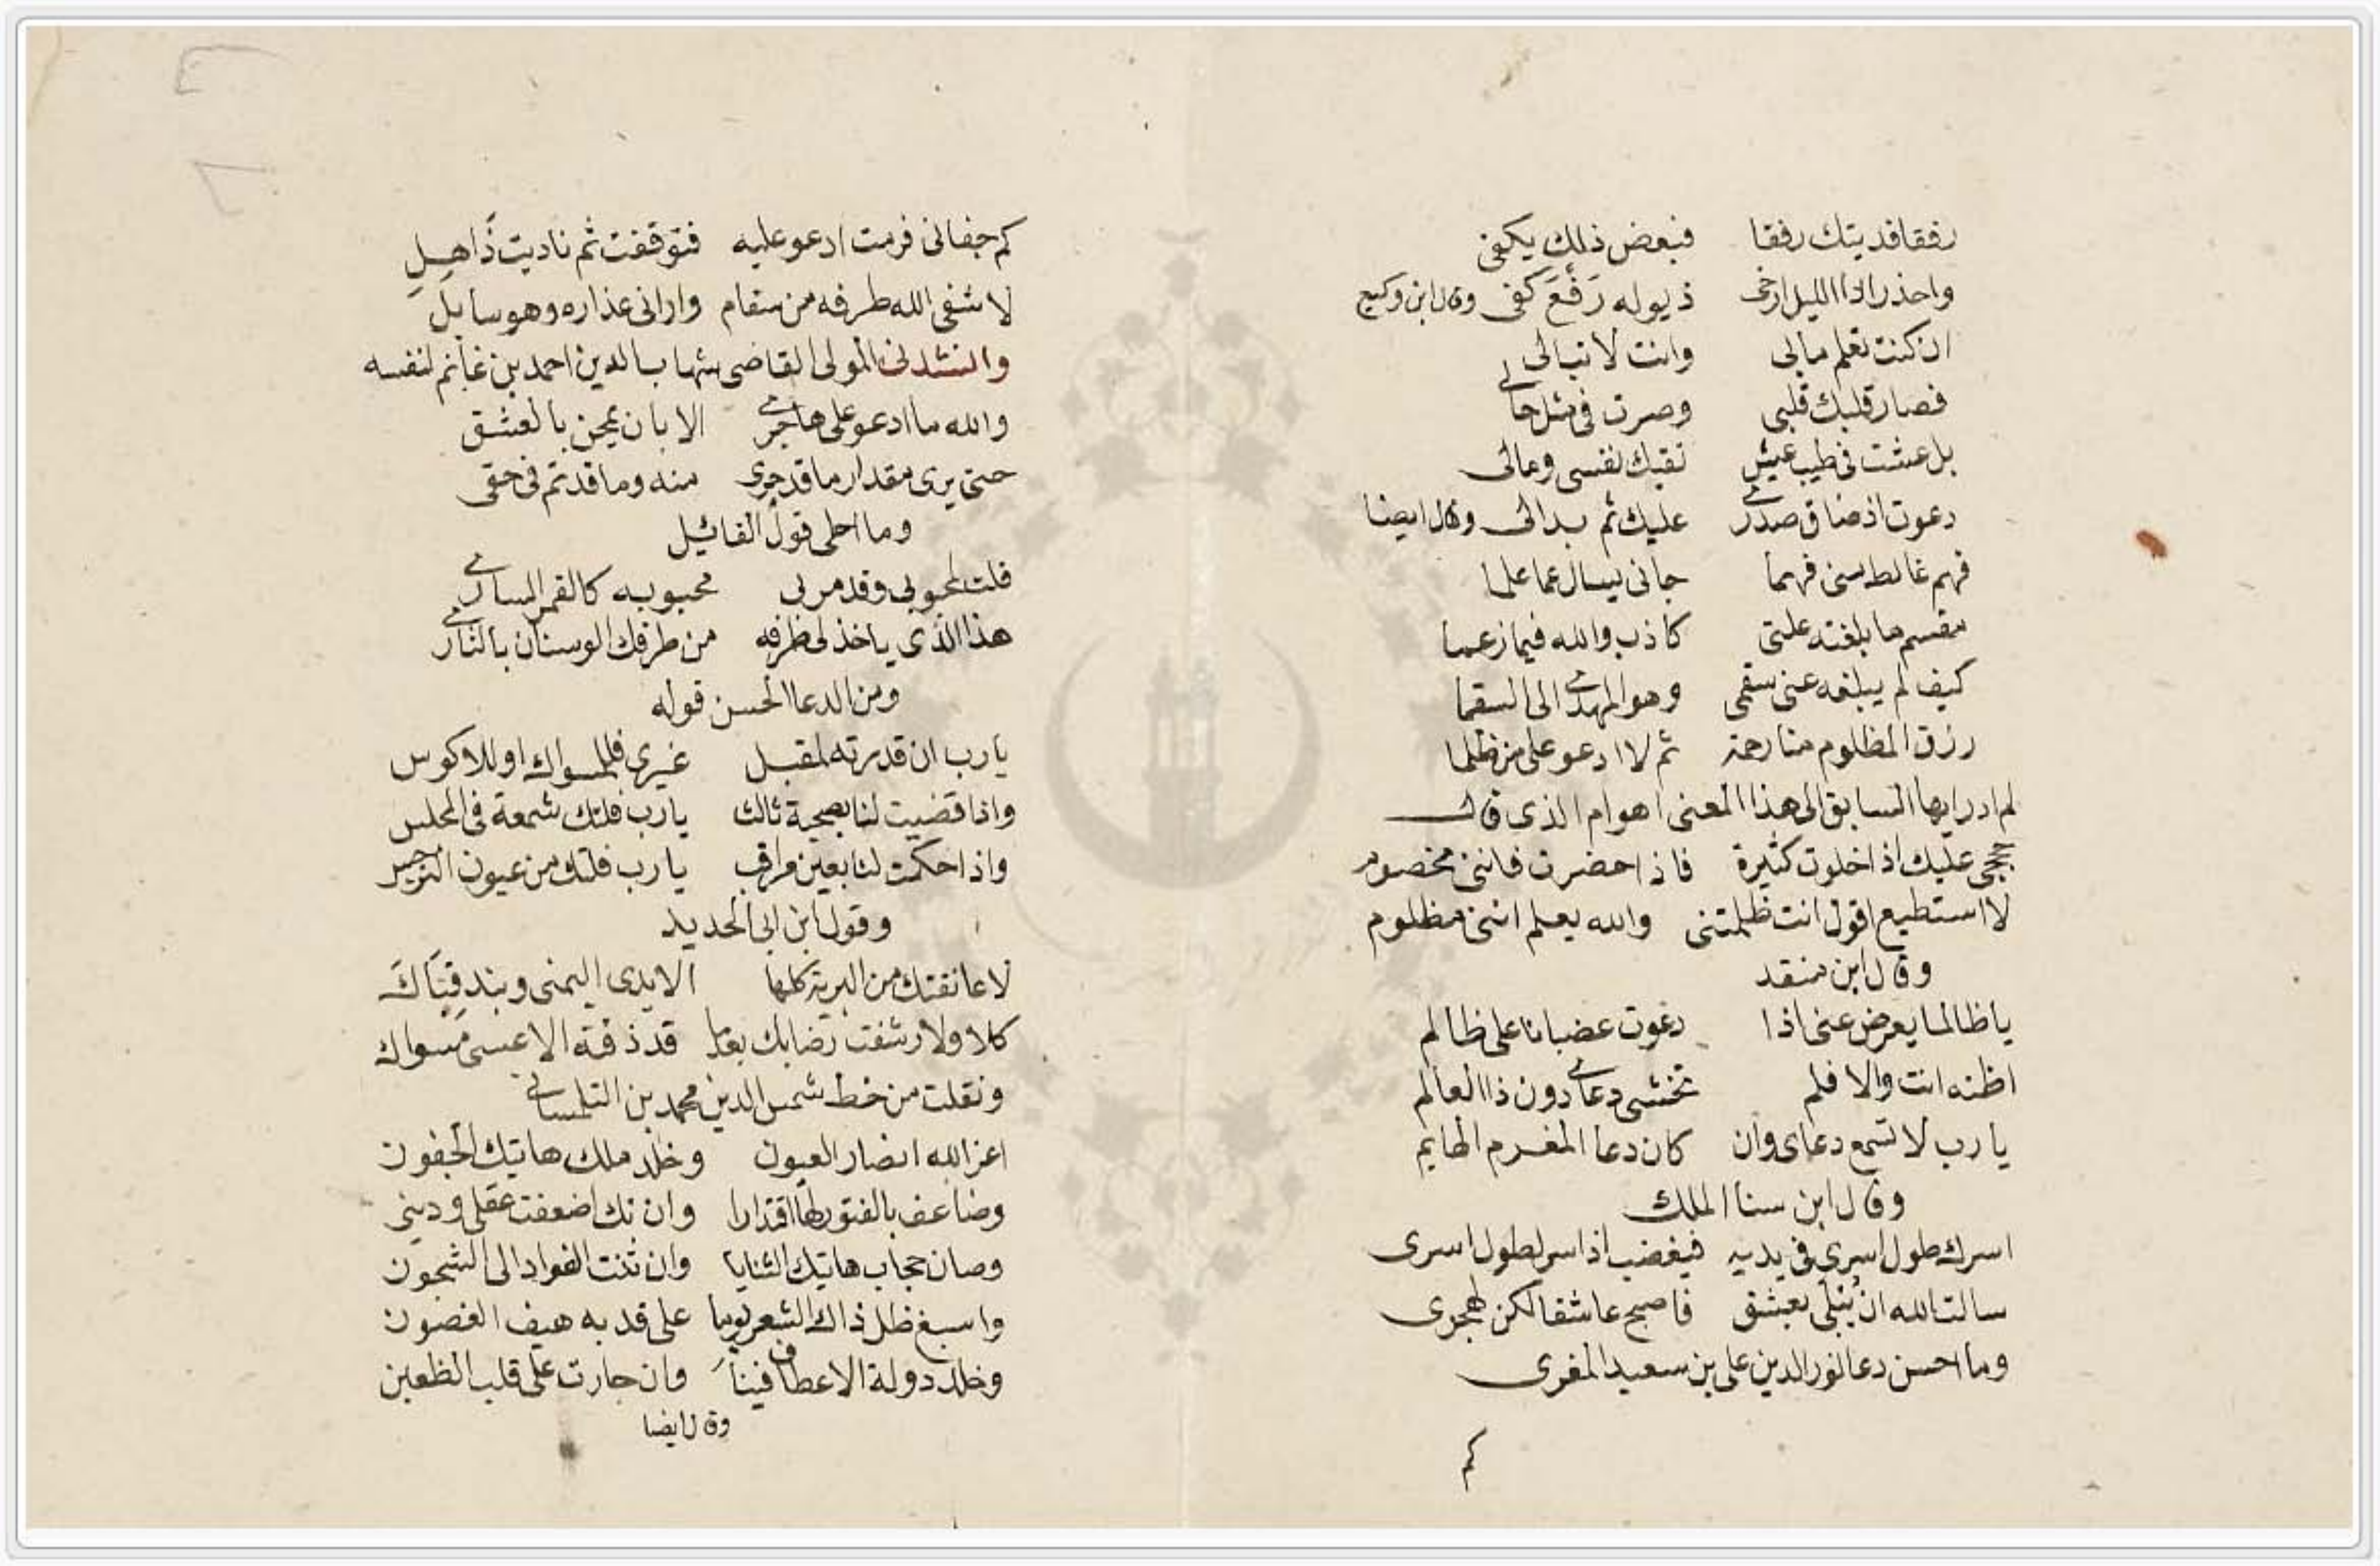 رفقا فديتك رفقا فبعض ذلك يكفي
واحذر اذا الليل ارخى ذيوله رَفْعَ كفى وقال ابن وكيع
ان كنت تعلم مابى وانت لا تبالى
فصار قلبك قلبى وصرت فى مثل حالى
بل عشت فى طيب عيش تقيك نفسى ومالى
دعوت اذ ضاق صدرى عليك ثم بدالى وقال ايضا
فهم غالط منى فهما جانى يسال عما علما
مقسم ما بلغته علتى كاذب والله فيما زعما
كيف لم يبلغه عنى سقمى وهو المهدى الى السقما
رزق المظلوم منا رحمة ثم لا ادعو على من ظلما
لم ادر ايها السابق الى هذا المعنى اهو ام الذى قال
حججى عليك اذا خلوت كثيرة فاذا حضرت فاننى مخصوم
لا استطيع اقول انت ظلمتنى والله يعلم اننى مظلوم
وقال ابن منقد
يا ظالما يعرض عنى اذا دعوت غضبانا على ظالم
اظنه انت والا فلم تخشى دعاى دون ذا العالم
يا رب لا تسمع دعاى وان كان دعا المغرم الهايم
وقال ابن سنا الملك
اسرك طول اسرى فى يديه فيغضب اذ اسر لطول اسرى
سالت الله ان يُبْلَى بعشق فاصبح عاشقا لكن لهجرى
وما احسن دعا نور الدين على بن سعيد المغربى
كم
كم جفانى فرمت ادعو عليه فتوقفت ثم ناديت ذاهل
لا شفى الله طرفه من سقام وارانى عذاره وهو سايل
وانشدنى المولى القاضى شهاب الدين احمد بن غانم لنفسه
والله ما ادعو على هاجرى الا بان يمحن بالعشق
حتى يرى مقدار ما قد جرى منه وما قد تم فى حقى
وما احلى قول القائيل
قلت لمحبوبى وقد مر بى محبوبه كالقمر السارى
هذا الذى ياخذ لى طرفه من طرفك الوسنان بالثارى
ومن الدعا الحسن قوله
يا رب ان قدرته لمقبل غيرى فللمسواك او للاكوس
واذا قضيت لنا بصحبة ثالث يا رب فلتك شمعة فى المجلس
واذا حكمت لنا بعين مراقب يا رب فلتك من عيون النرجس
وقول ابن ابى الحديد
لا عانقتك من البرية كلها الا يدى اليمنى وبند قباك
كلا ولا رشفت رضابك بعدما قد ذقته الا عسى مسواك
ونقلت من خط شمس الدين محمد بن التلمسانى
اعز الله انصار العيون وخلد ملك هاتيك الجفون
وضاعف بالفتور لها اقتدارا وان تك اضعفت عقلى ودينى
وصان حجاب هاتيك الثنايا وان ثنت الفواد الى الشجون
واسبغ ظل ذاك الشعر يوما على قد به هيف الغصون
وخلد دولة الاعطاف فينا وان جارت على قلب الظعين
وقال ايضا